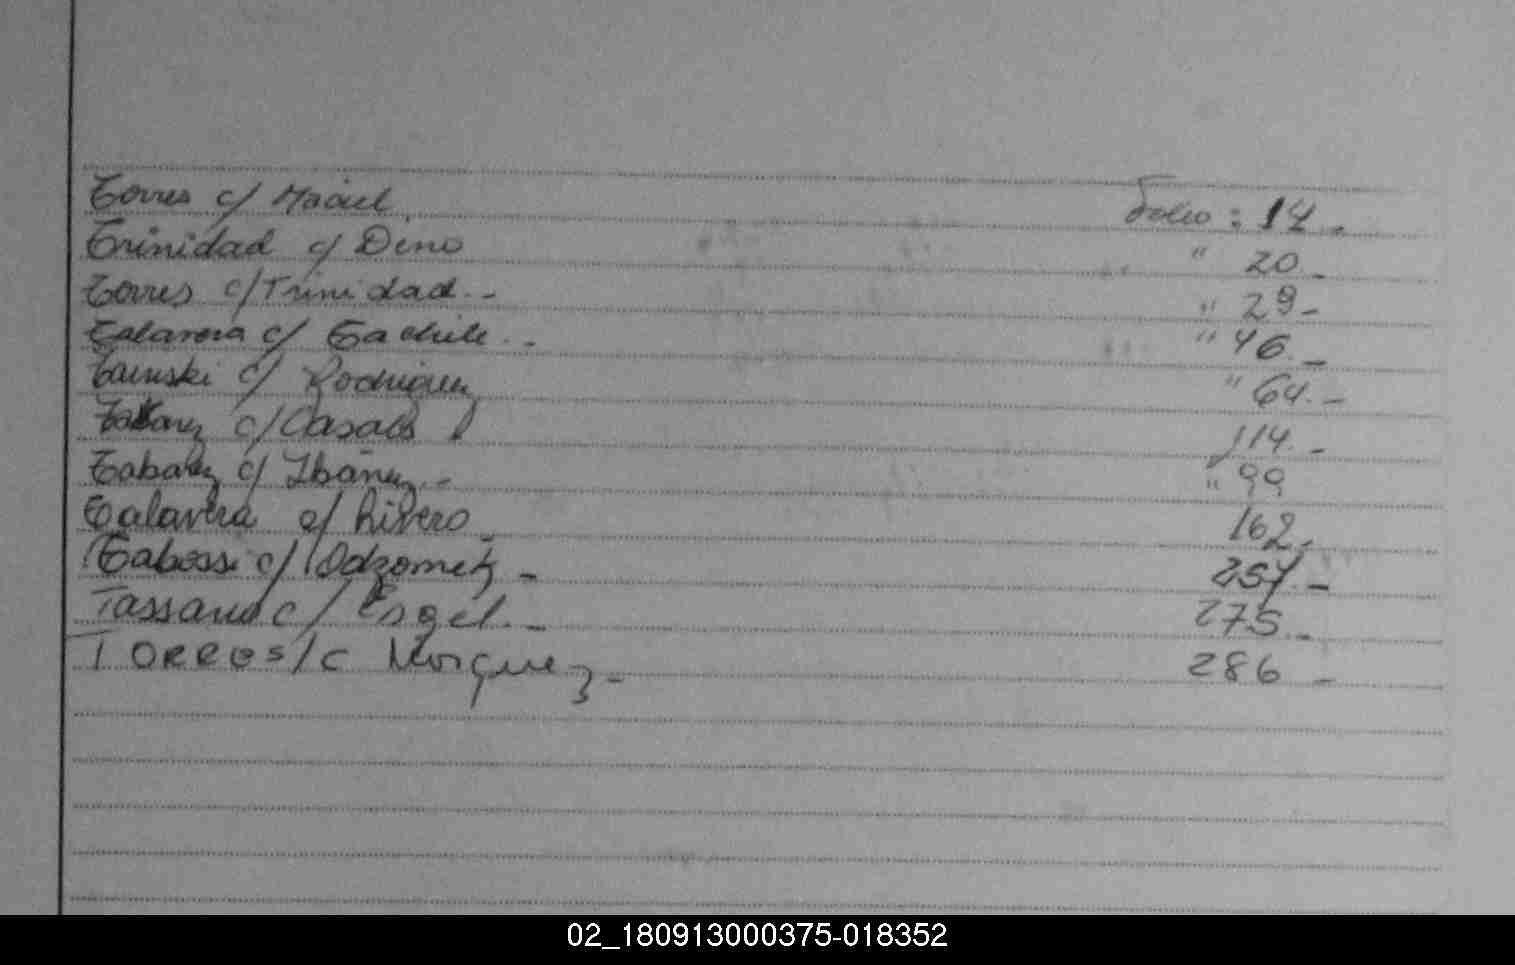 Torres c/ Maciel Folio: 14.-
Trinidad c/ Deno " 20.-
Torres c/ Trinidad.- " 29-
Talavera c/ " 46.-
c/ Rodriguez " 64.-
Tabarez c/ Casals 114.-
Tabarez c/ Ibañez.- " 99
Talavera c/ Rivero 162.-
Tabossi c/ 257.-
Tassano c/ 275.-
TORRES/c 286 -
02_180913000375-018352